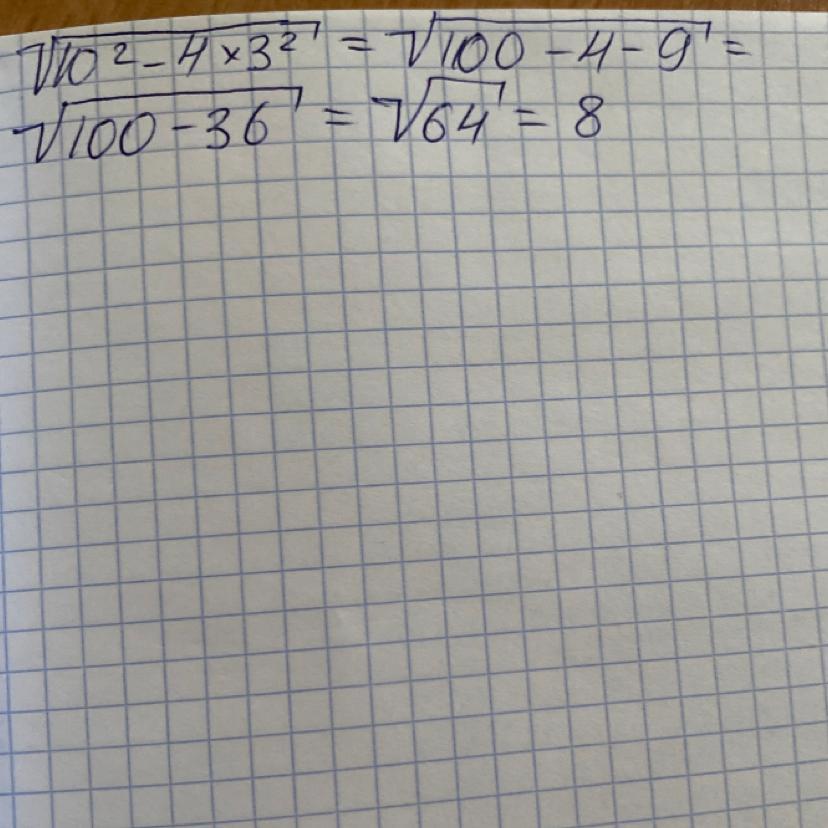 √10² - 4 × 3² = √100 - 4 - 9 =
√100 - 36 = √64 = 8